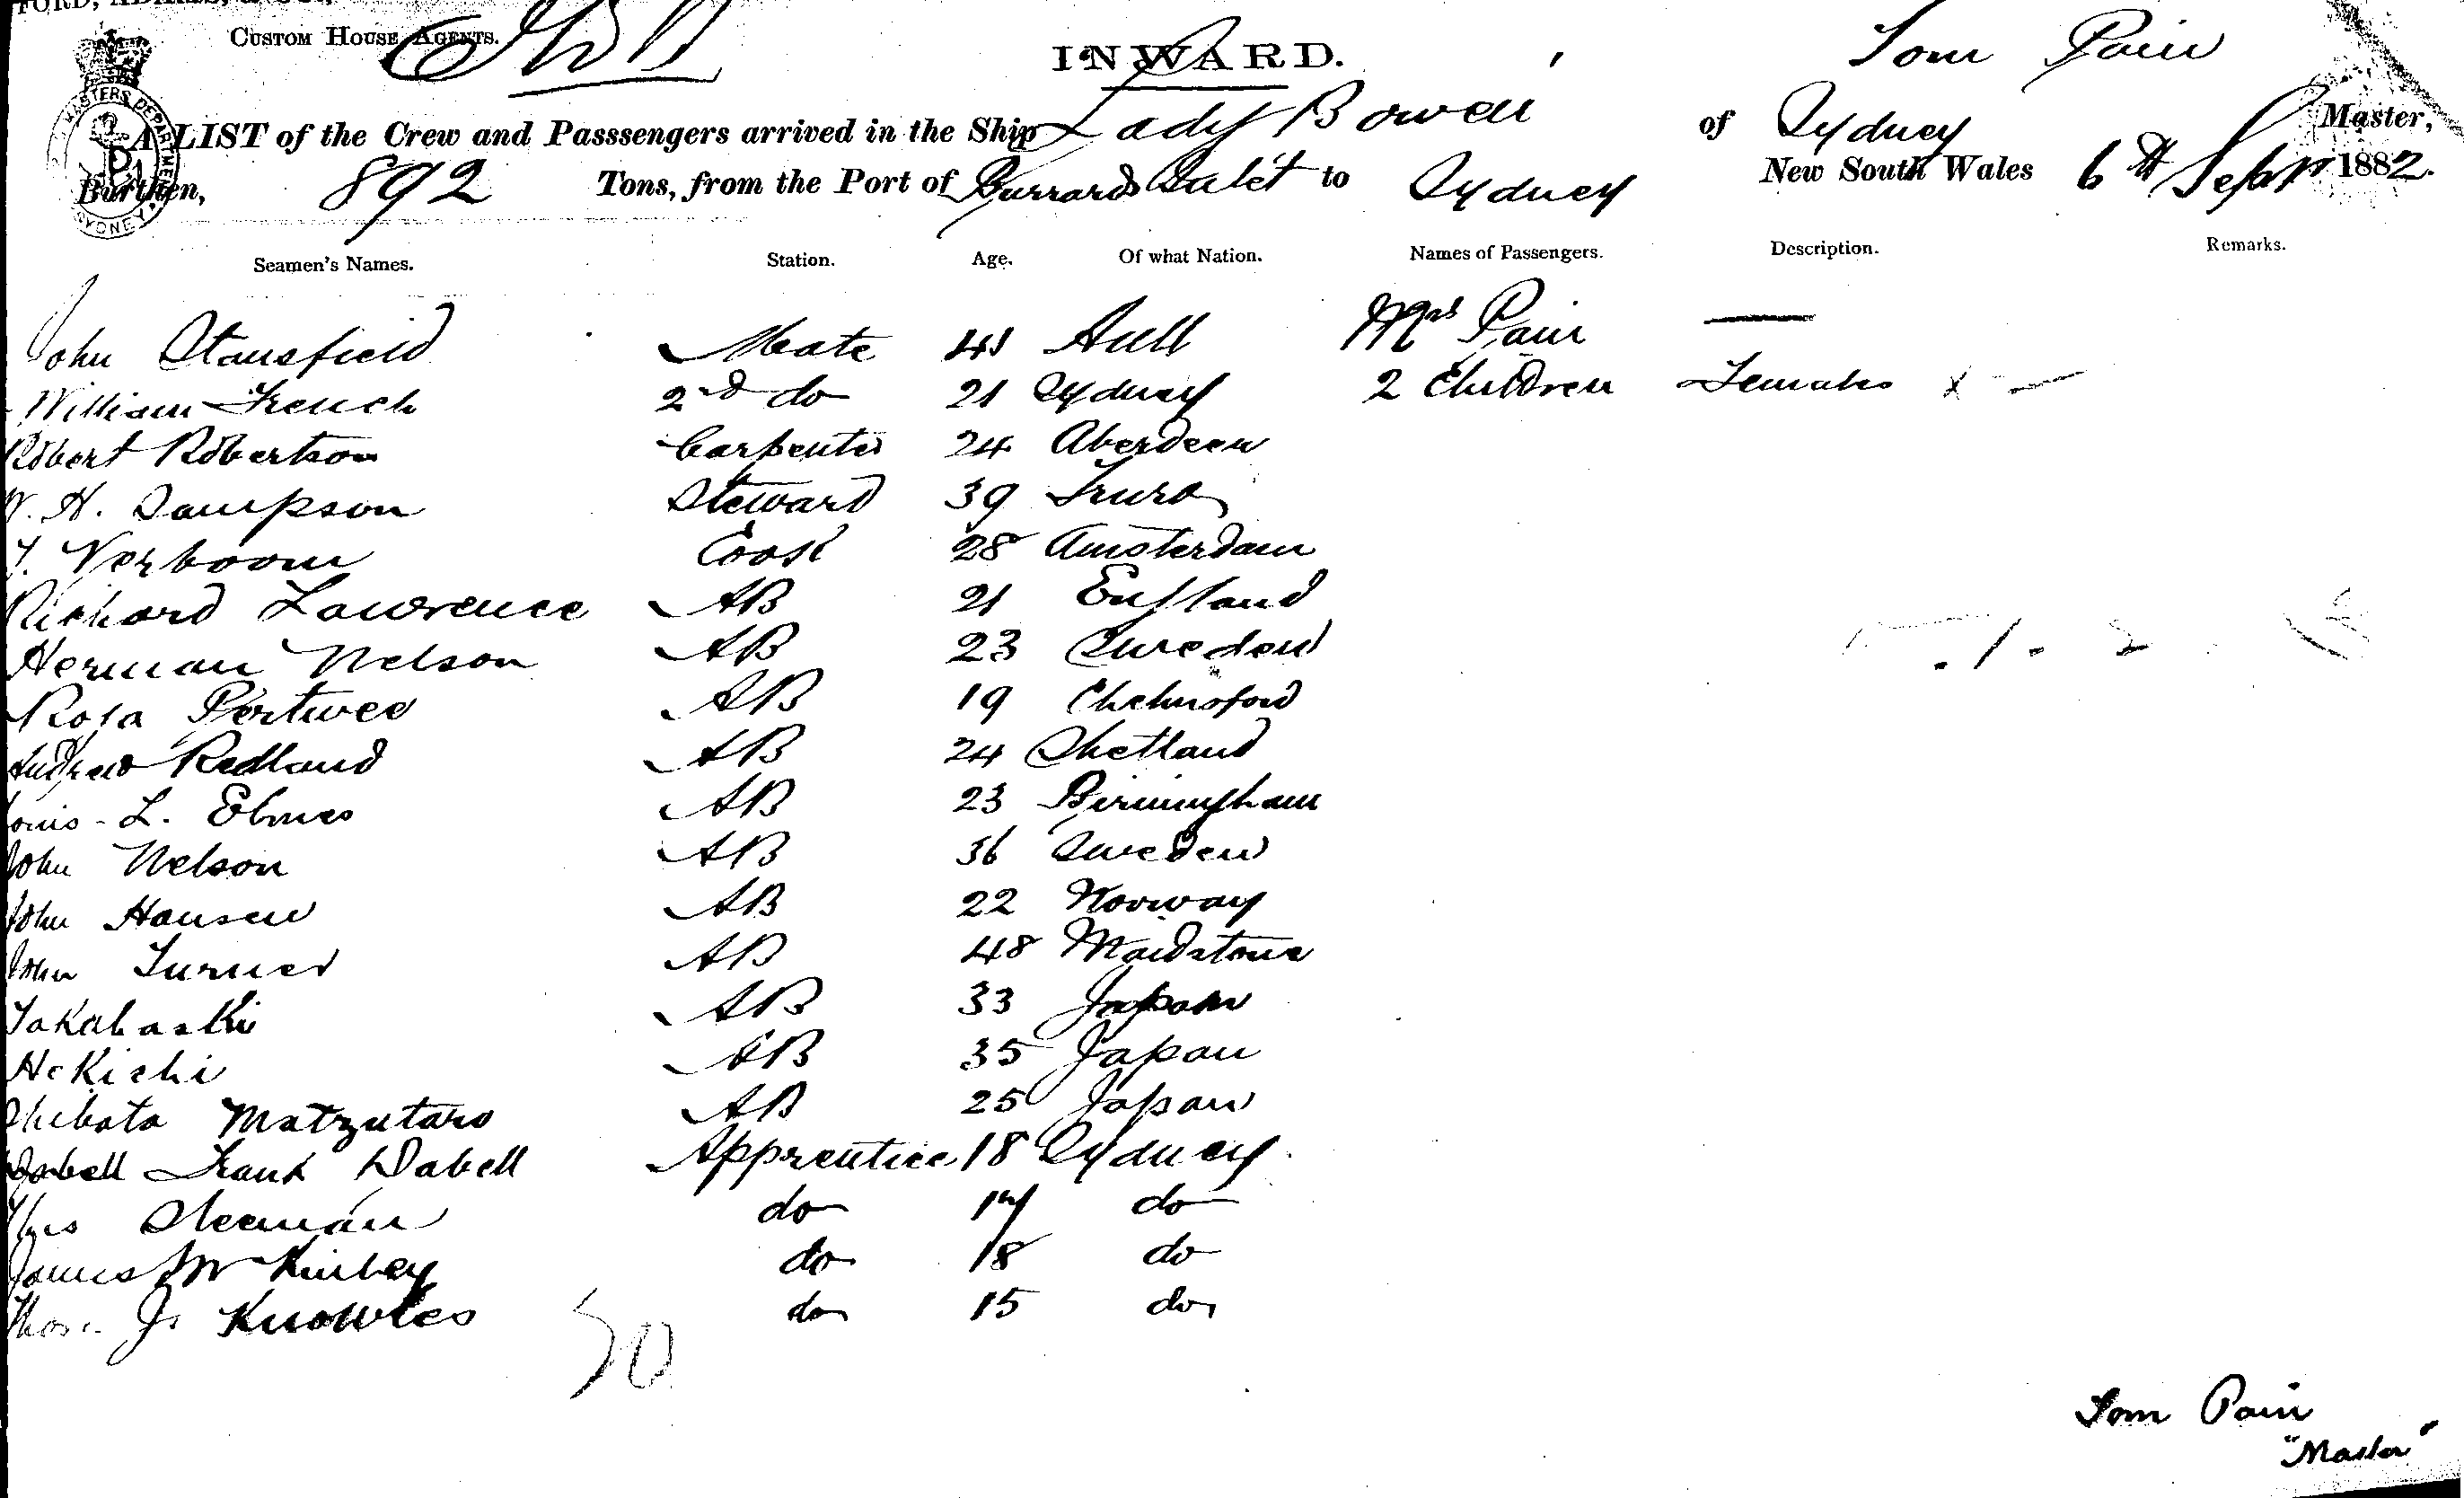 CUSTOM HOUSE AGENTS.
INWARD.
Tom Pain
A LIST of the Crew and Passsengers arrived in the Ship Lady Bowen of Sydney Master,
Burthen, 892 Tons, from the Port of Burrards Inlet to Sydney New South Wales 6th Sepr 1882.
Seamen's Names. Station. Age. Of what Nation. Names of Passengers. Description. Remarks.
John Stansfield Mate 41 Hull Mrs Pain —
William French 2nd do 21 Sydney 2 Children Females x —
Robert Robertson Carpenter 24 Aberdeen
W. H. Sampson Steward 39 Truro
Verboom Cook 28 Amsterdam
Richard Lawrence AB 21 England
Herman Nelson AB 23 Sweden
Pertwee AB 19 Chelmsford
Andrew Redland AB 24 Shetland
Louis L. Elmes AB 23 Birmingham
John Nelson AB 36 Sweden
John Hansen AB 22 Norway
John Turner AB 48 Maidstone
Takahashi AB 33 Japan
HeKichi AB 35 Japan
Shibata Matzutaro AB 25 Japan
Dabell Frank Dabell Apprentice 18 Sydney
Sleeman do 17 do
James do 18 do
Thos. J. Knowles do 15 do
20
Tom Pain
"Master"